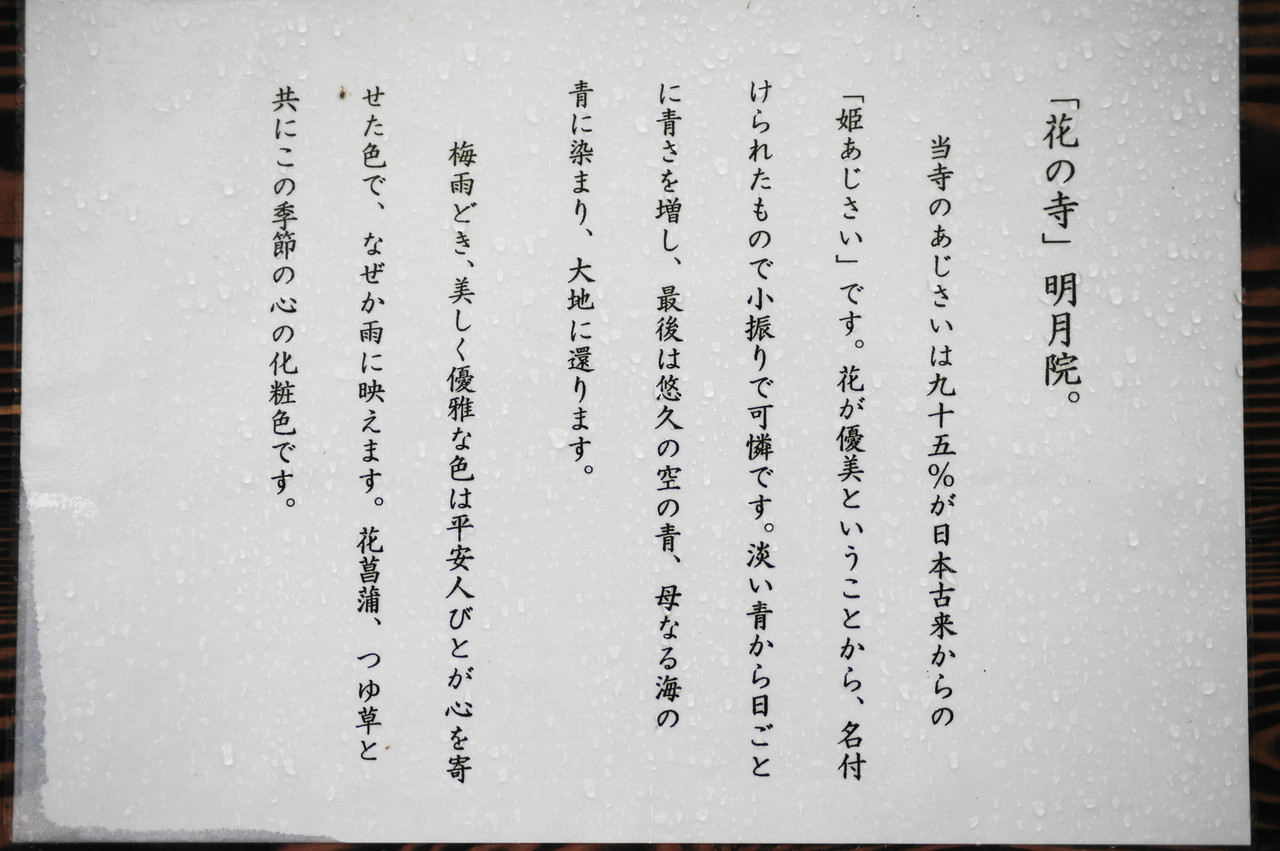 「花の寺」明月院。
当寺のあじさいは九十五％が日本古来からの
「姫あじさい」です。花が優美ということから、名付
けられたもので小振りで可憐です。淡い青から日ごと
に青さを増し、最後は悠久の空の青、母なる海の
青に染まり、大地に還ります。
梅雨どき、美しく優雅な色は平安人びとが心を寄
せた色で、なぜか雨に映えます。花菖蒲、つゆ草と
共にこの季節の心の化粧色です。